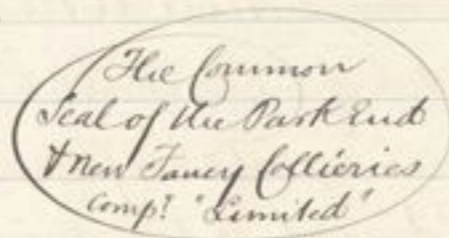 The Common
Seal of the Park End
& New Fancy Collieries
Compy "Limited"